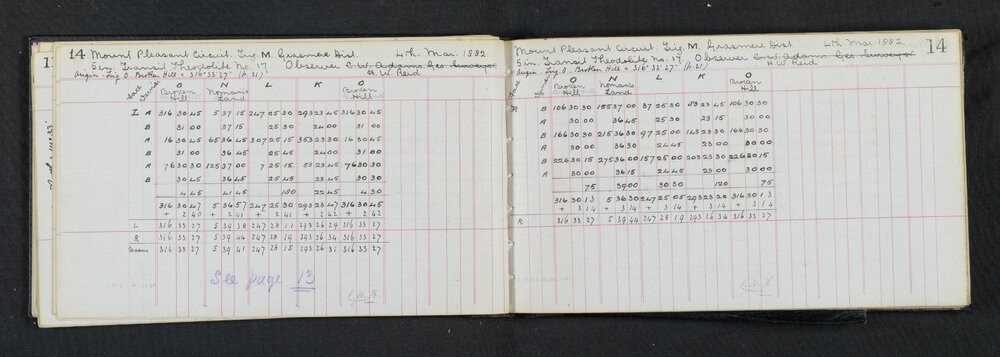 14 Mount Pleasant Circuit. Trig. M. Grasmere Dist. 4th. Mar. 1882
5 in. Transit Theodolite No. 17. Observer C. W. Adams. Geo. Surveyor
H. W Reid
Origin - Trig O. Broken Hill = 316° 33' 27" (p. 21)
Face O N L K O
Broken Hill Noman's Land Broken Hill
L A 316 30 45 5 37 15 247 25 30 293 23 45 316 30 45
B 31 00 37 15 25 30 24 00 31 00
A 16 30 45 65 36 45 307 25 15 353 23 30 16 30 45
B 31 00 36 45 25 45 24 00 31 00
A 76 30 30 125 37 00 7 25 15 53 23 45 76 30 30
B 30 45 36 45 25 45 23 45 30 30
4 45 41 45 180 22 45 4 30
316 30 47 5 36 57 247 25 30 293 23 47 316 30 45
+ 2 40 + 2 41 + 2 41 + 2 42 + 2 42
L 316 33 27 5 39 38 247 28 11 293 26 29 316 33 27
R 316 33 27 5 39 44 247 28 19 293 26 34 316 33 27
Means 316 33 27 5 39 41 247 28 15 293 26 31 316 33 27
See page 13
Mount Pleasant Circuit. Trig. M. Grasmere Dist. 4th. Mar. 1882. 14
5 in. Transit Theodolite No. 17. Observer C. W. Adams. Geo. Surveyor
H. W Reid
Origin - Trig O. Broken Hill = 316° 33' 27" (p. 21)
Face O N L K O
Broken Hill Noman's Land Broken Hill
R B 106 30 30 155 37 00 37 25 30 83 23 45 106 30 30
A 30 00 36 45 25 30 23 15 30 00
B 166 30 30 215 36 30 97 25 00 143 23 30 166 30 30
A 30 00 36 30 24 45 23 00 30 00
B 226 30 15 275 36 00 157 25 00 203 23 30 226 30 15
A 30 00 36 15 24 45 23 00 30 00
75 39 00 30 30 120 75
316 30 13 5 36 30 247 25 05 293 23 20 316 30 13
+ 3 14 + 3 14 + 3 14 + 3 14 + 3 14
R 316 33 27 5 39 44 247 28 19 293 26 34 316 33 27